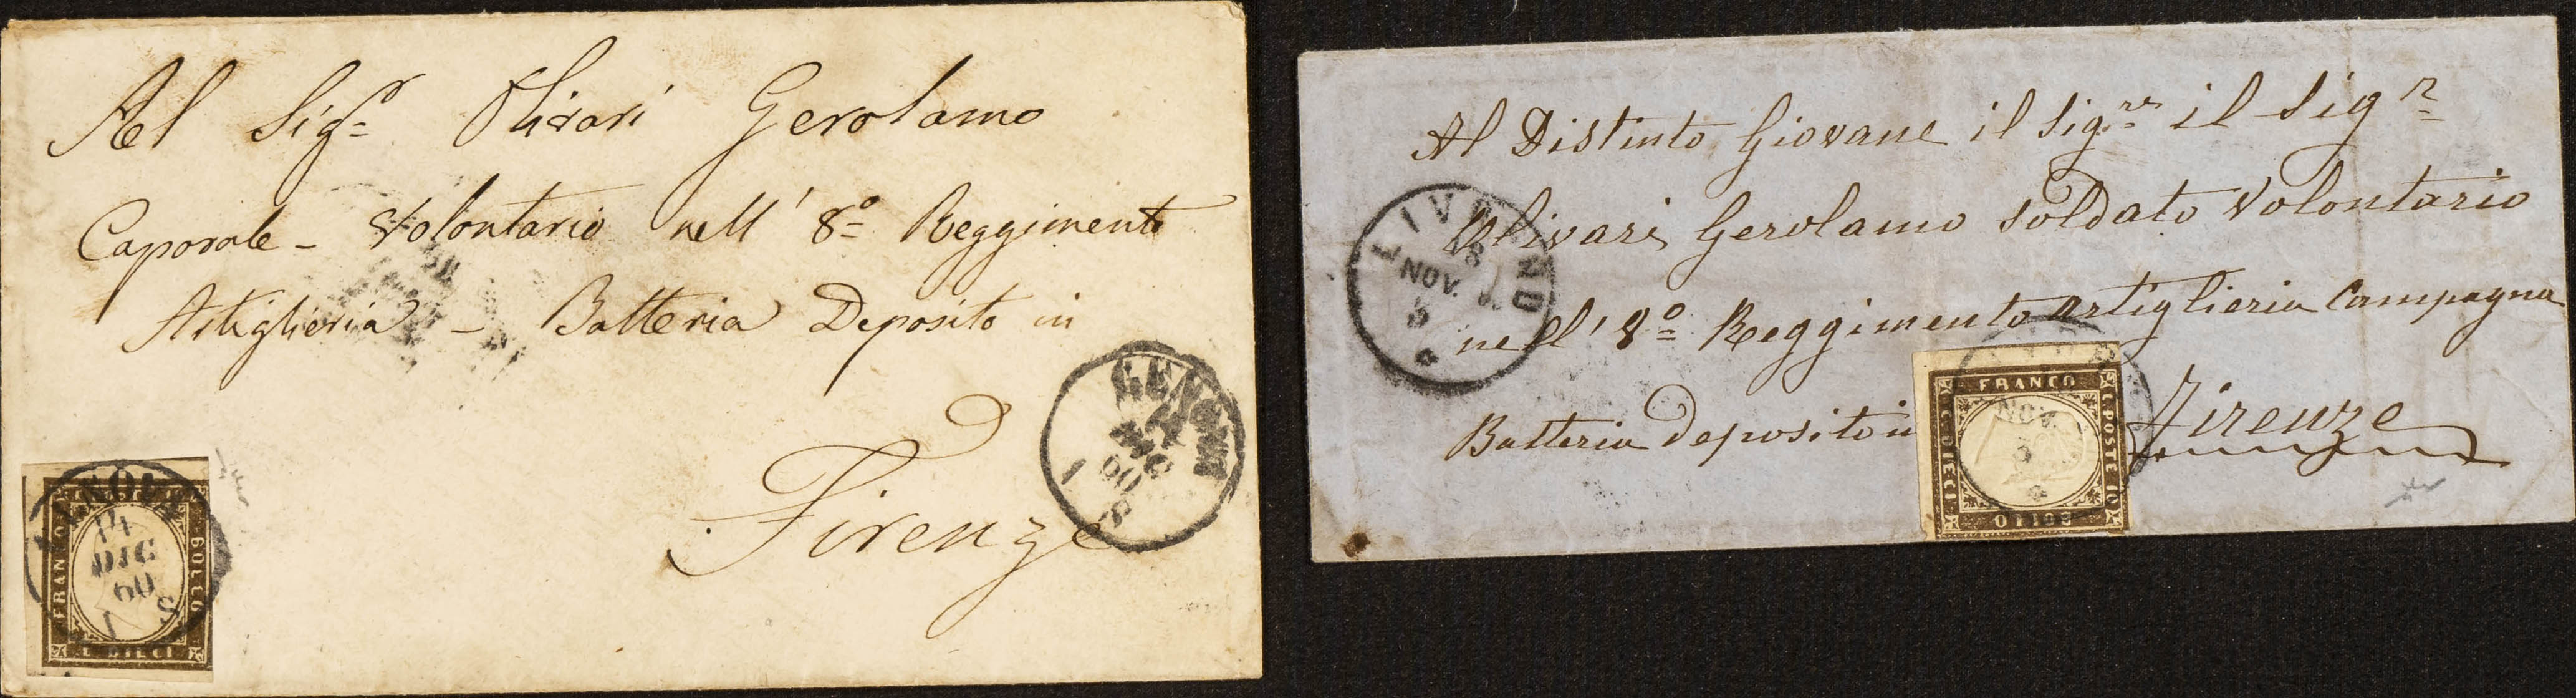 Al Sigr Olivari Gerolamo
Caporale - Volontario nell' 8o Reggimento
Artiglieria - Batteria Deposito in
Firenze
GENOVA
14
DIC
60
14
DIC
60
1 S
FRANCO
BOLLO
C. DIECI
Al Distinto Giovane il Sigre il Sigr
Olivari Gerolamo soldato Volontario
nell' 8o Reggimento artiglieria Campagna
Batteria deposito in Firenze
LIVORNO
18
NOV.
NOV.
FRANCO
C. POSTE 10
BOLLO
C. DIECI